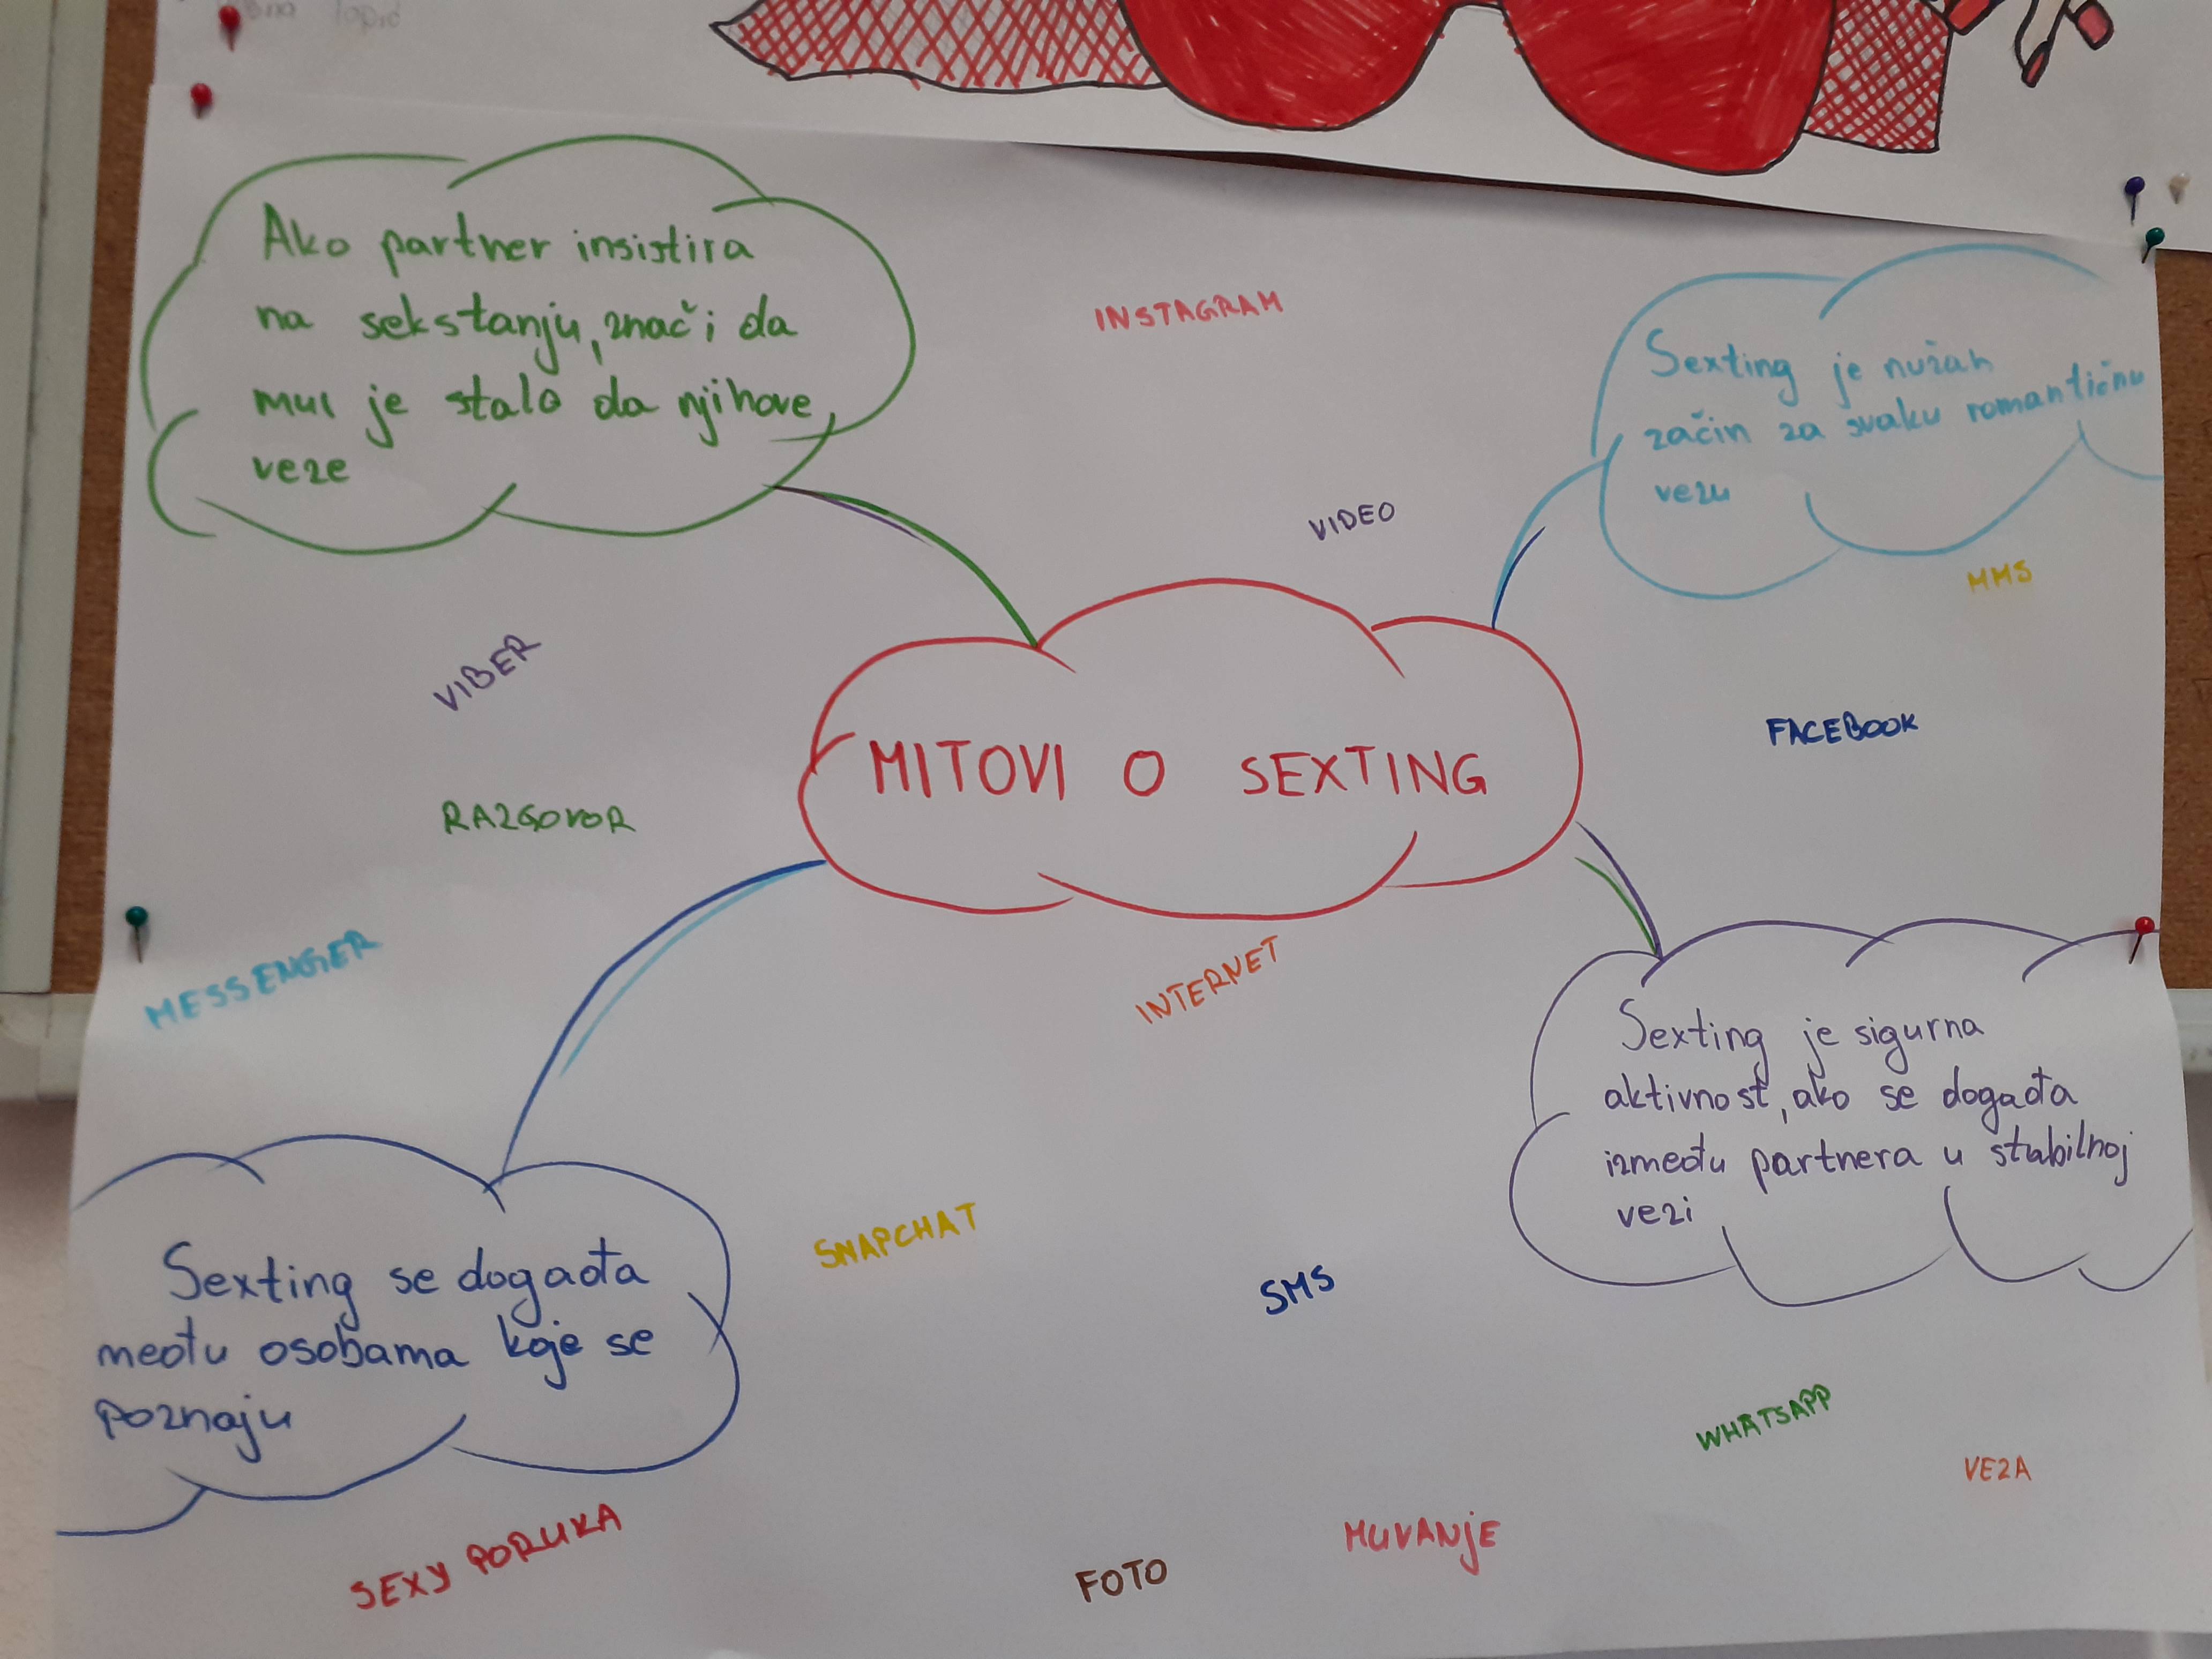 Ako partner insistira
na sekstanju, znači da
mu je stalo da njihove
veze
INSTAGRAM
Sexting je nužan
začin za svaku romantičnu
vezu
VIDEO
MMS
VIBER
FACEBOOK
MITOVI O SEXTING
RAZGOVOR
MESSENGER
INTERNET
Sexting je sigurna
aktivnost, ako se događa
između partnera u stabilnoj
vezi
Sexting se događa
među osobama koje se
poznaju
SNAPCHAT
SMS
WHATSAPP
VEZA
SEXY PORUKA
FOTO
MUVANJE